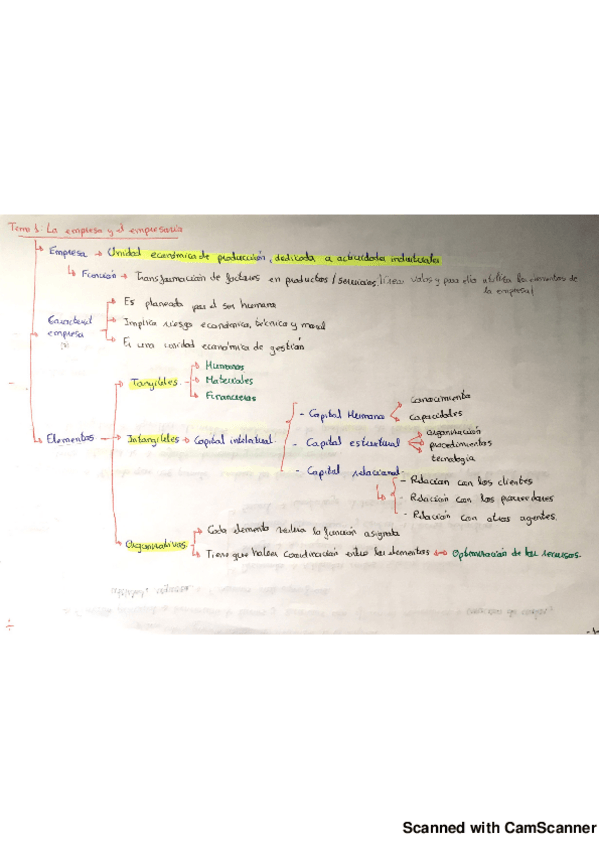 Tema 1: La empresa y el empresario
Empresa → Unidad económica de producción, dedicada a actividades industriales
Función → Transformación de factores en productos/servicios, crear valor y para ello utiliza los elementos de
la empresa
Caracterist
empresa
Es planeada por el ser humano
Implica riesgo económico, técnico y moral
Es una unidad económica de gestión
Elementos
Tangibles
Humanos
Materiales
Financieros
Intangibles → Capital intelectual
- Capital Humano
Conocimiento
Capacidades
- Capital estructural
organización
procedimientos
tecnología
- Capital relacional
- Relación con los clientes
- Relación con los proveedores
- Relación con otros agentes.
Organizativos
Cada elemento realiza la función asignada
Tiene que haber coordinación entre los elementos → Optimización de los recursos.
Scanned with CamScanner